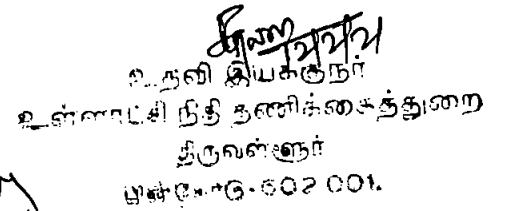 உதவி இயக்குநர்
உள்ளாட்சி நிதி தணிக்கைத்துறை
திருவள்ளூர்
602 001.